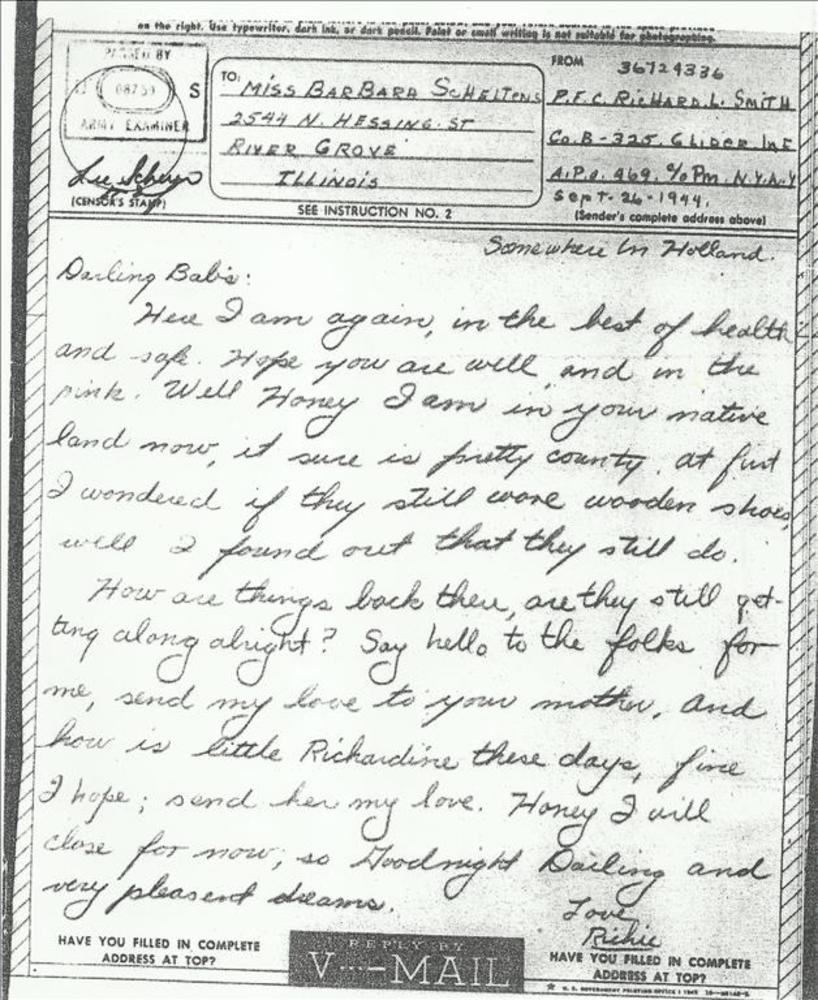 on the right. Use typewriter, dark ink, or dark pencil. Faint or small writing is not suitable for photographing.
PASSED BY
08759 S
ARMY EXAMINER
(CENSOR'S STAMP)
TO:
MISS BARBARA SCHELTENS
2544 N. HESSING. ST
RIVER GROVE
ILLINOIS
SEE INSTRUCTION NO. 2
FROM
36724336
P.F.C. RICHARD. L. SMITH
CO. B - 325. GLIDER INF
A.P.O. 469. % PM. N.Y.N.Y
SEPT - 26 - 1944.
(Sender's complete address above)
Somewhere In Holland.
Darling Babs:
Here I am again, in the best of health
and safe. Hope you are well and in the
pink. Well Honey I am in your native
land now, it sure is pretty county. at first
I wondered if they still wore wooden shoes,
well I found out that they still do.
How are things back there, are they still get-
ting along alright? Say hello to the folks for
me, send my love to your mother. And
how is little Richardine these days, fine
I hope; send her my love. Honey I will
close for now, so Goodnight Darling and
very pleasent dreams.
Love
Richie
HAVE YOU FILLED IN COMPLETE
ADDRESS AT TOP?
REPLY BY
V···—MAIL
HAVE YOU FILLED IN COMPLETE
ADDRESS AT TOP?
U. S. GOVERNMENT PRINTING OFFICE